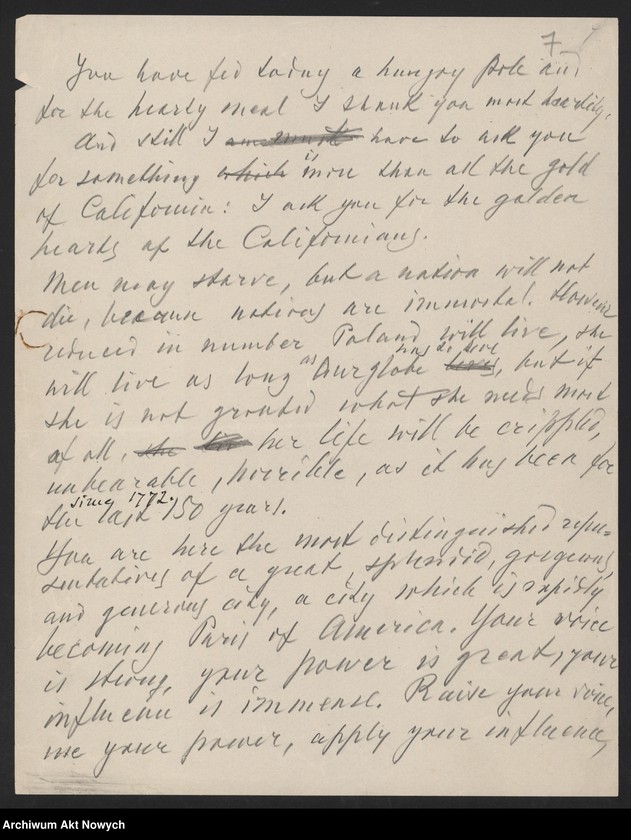 7
You have fed today a hungry Pole and
for the hearty meal I thank you most heartily.
And still I am must have to ask you
for something which is more than all the gold
of California: I ask you for the golden
hearts of the Californians.
Men may starve, but a nation will not
die, because nations are immortal. However
reduced in number Poland will live, she
will live as long as our globe has to live lives, but if
she is not granted what she needs most
of all, she her life will be crippled,
unbearable, horrible, as it has been for
since 1772.
the last 150 years.
You are here the most distinguished repre-
sentatives of a great, splendid, gorgeous,
and generous city, a city which is rapidly
becoming Paris of America. Your voice
is strong, your power is great, your
influence is immense. Raise your voice,
use your power, apply your influence,
Archiwum Akt Nowych